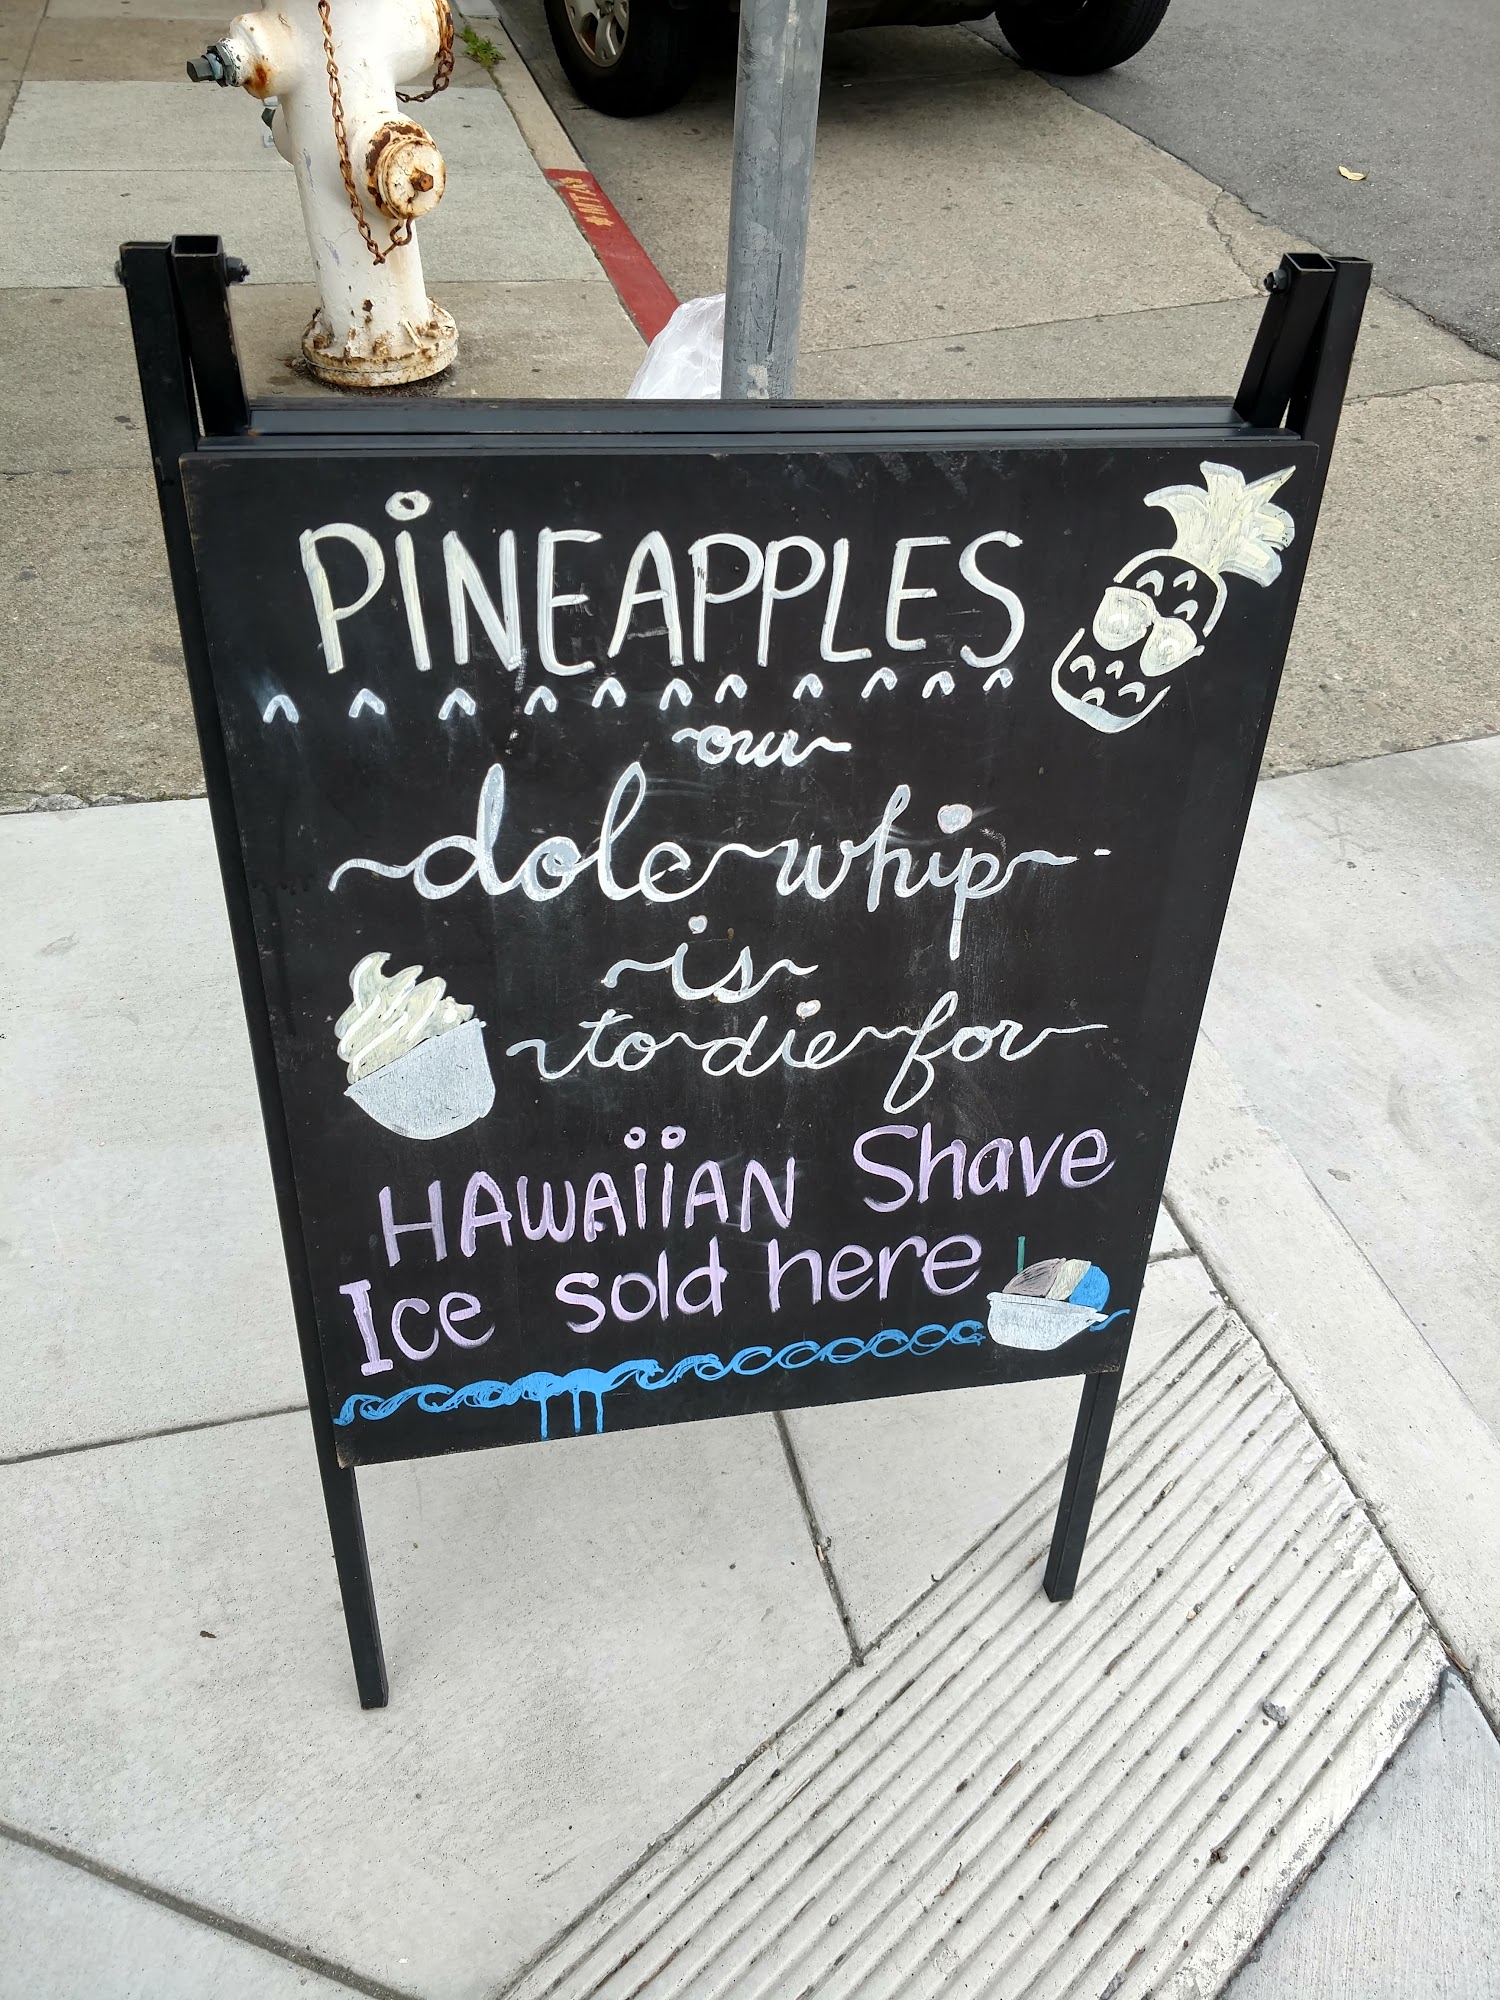 MTAS
PiNEAPPLES
our
dole whip
is
to die for
HAWAiiAN Shave
Ice sold here